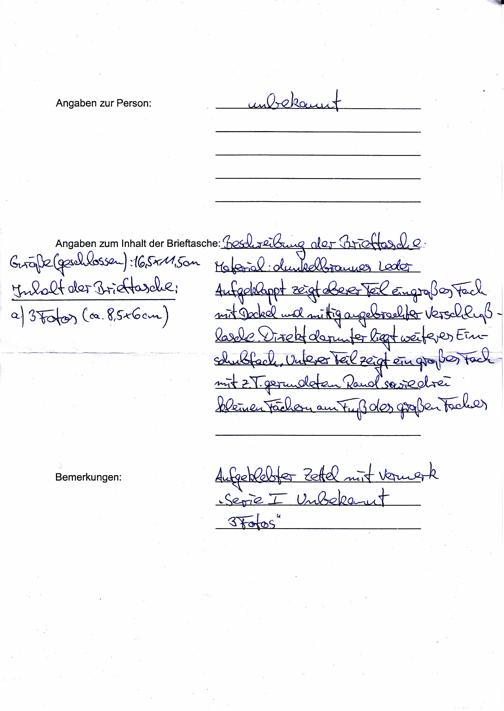 Angaben zur Person: unbekannt
Angaben zum Inhalt der Brieftasche: Beschreibung der Brieftasche:
Größe (geschlossen): 16,5x11,5cm
Inhalt der Brieftasche:
a) 3 Fotos (ca. 8,5x6cm)
Material: dunkelbraunes Leder
Aufgeklappt zeigt oberer Teil ein großes Fach
mit Deckel und mittig angebrachter Verschluß-
lasche. Direkt darunter liegt weiteres Ein-
schubfach. Unterer Teil zeigt ein großes Fach
mit z.T. gerundeten Rand sowie drei
kleinen Fächern am Fuß des großen Faches
Bemerkungen: Aufgeklebter Zettel mit Vermerk
"Serie I Unbekannt
3 Fotos"